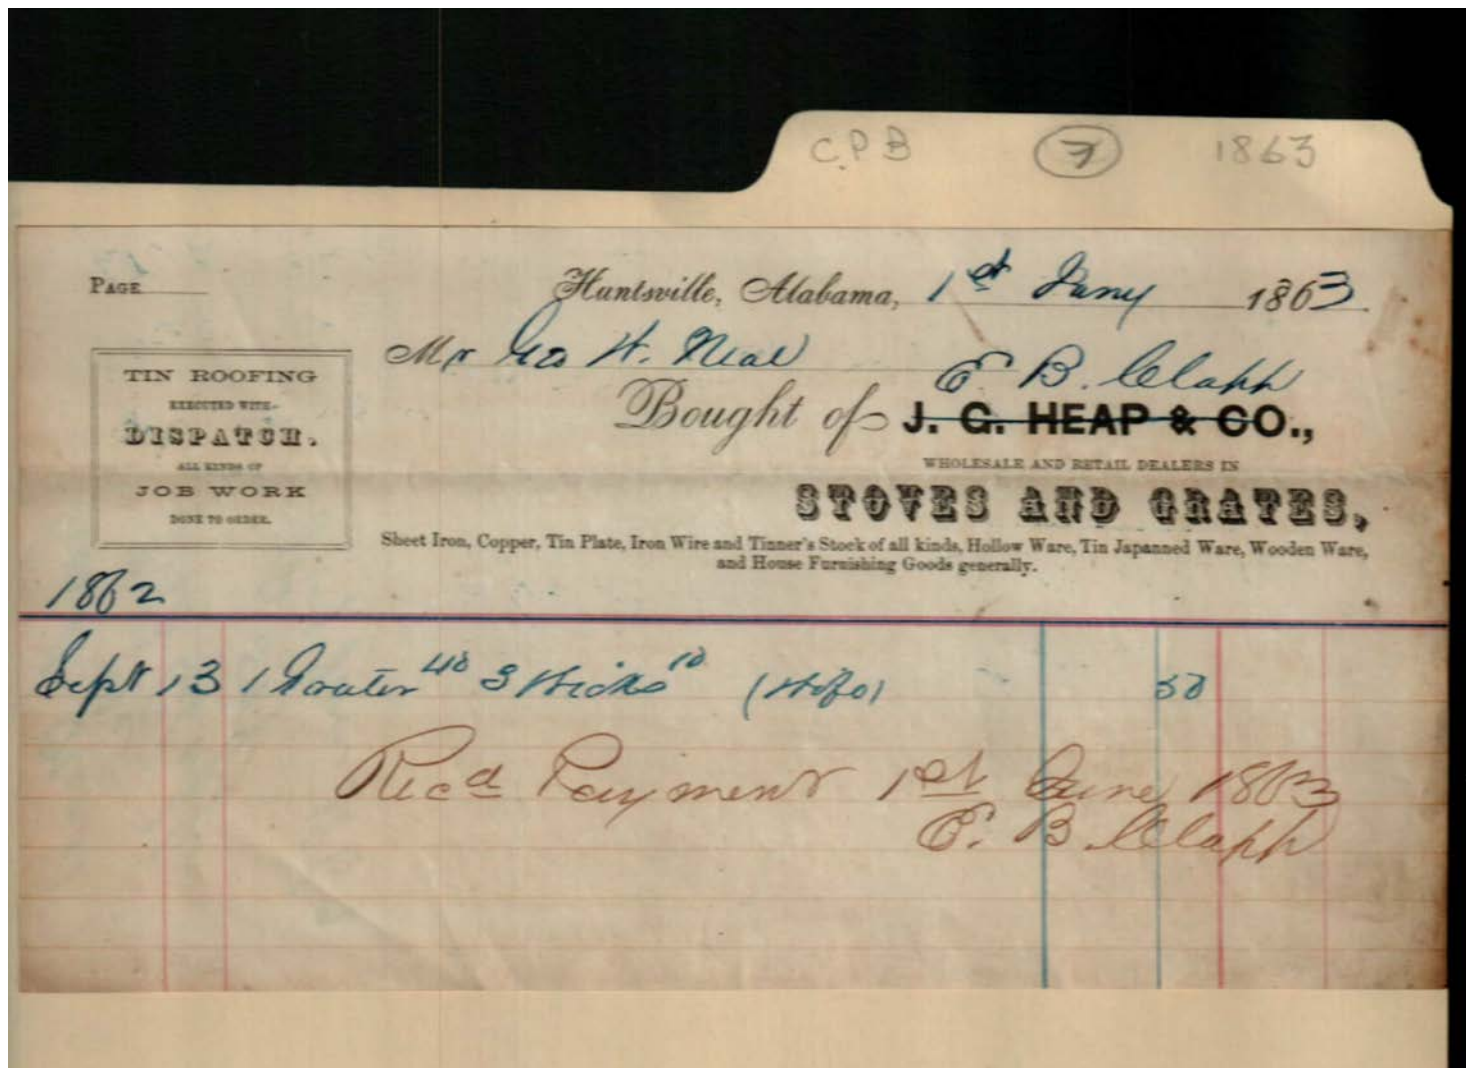 C.P.B 7 1863
PAGE
Huntsville, Alabama, 1st Jany 1863
Mr Geo H. Neal
E. B. Clapp
Bought of J. G. HEAP & CO.,
WHOLESALE AND RETAIL DEALERS IN
STOVES AND GRATES,
Sheet Iron, Copper, Tin Plate, Iron Wire and Tinner's Stock of all kinds, Hollow Ware, Tin Japanned Ware, Wooden Ware,
and House Furnishing Goods generally.
TIN ROOFING
EXECUTED WITH
DISPATCH.
ALL KINDS OF
JOB WORK
DONE TO ORDER.
1862
Sept 13 1 40 3 Wicks 10 50
Recd Payment 1st June 1863
E. B. Clapp